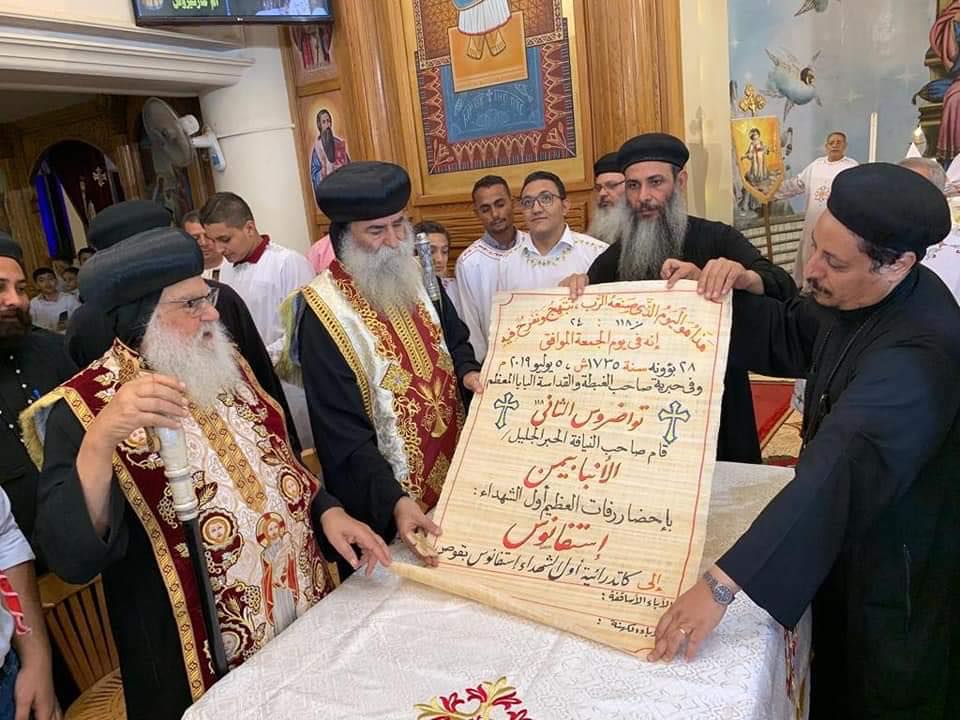 هذا هو اليوم الذي صنعه الرب فلنبتهج ونفرح فيه
مز ١١٨ : ٢٤
إنه فى يوم الجمعة الموافق
٢٨ بؤونه سنة ١٧٣٥ش ، ٥ يوليو ٢٠١٩م
وفى حبرية صاحب الغبطة والقداسة البابا المعظم
تواضروس الثانى ١١٨
قام صاحب النيافة الحبر الجليل /
الأنبا بيمن
بإحضار رفات العظيم أول الشهداء :
إستفانوس
إلى كاتدرائية أول الشهداء إستفانوس بقوص
الآباء الأساقفة :